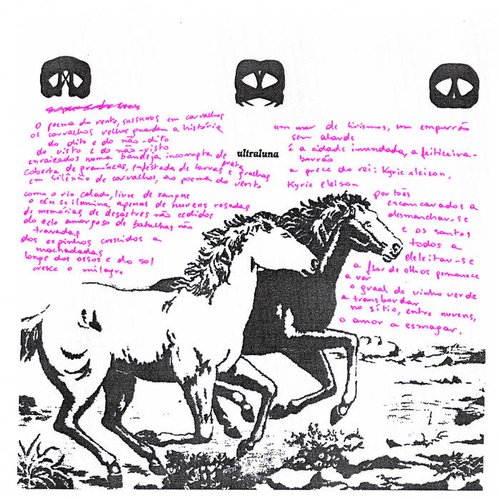 O poema do vento, sussurros em carvalhos
os carvalhos velhos guardam a história
do dito e do não-dito
do visto e do não-visto
enraizados numa bandeja incorrupta de prata
coberta de pirâmides, infestada de larvas e gralhas
em silêncio de carvalho, ao poema do vento
como o rio calado, livre de sangue
o céu se ilumina apenas de nuvens rosadas
de memórias de desastres não cedidos
do pelo amoroso de batalhas não
travadas
dos espinhos crescidos a
machadadas
longe dos ossos e do sol
cresce o milagre
ultraluna
um mar de lirismos, um empurrão
sem alarde
é a cidade inundada, a feiticeira-
barrão
a prece do rei: Kyrie eleison.
Kyrie eleison
por três
encarnavados a
desmanchar-se
e os santos
todos a
deleitar-se
a flor de olhos permanece
a voar
o graal de vinho verde
a transbordar
no sítio, entre nuvens,
o amor a esmagar.